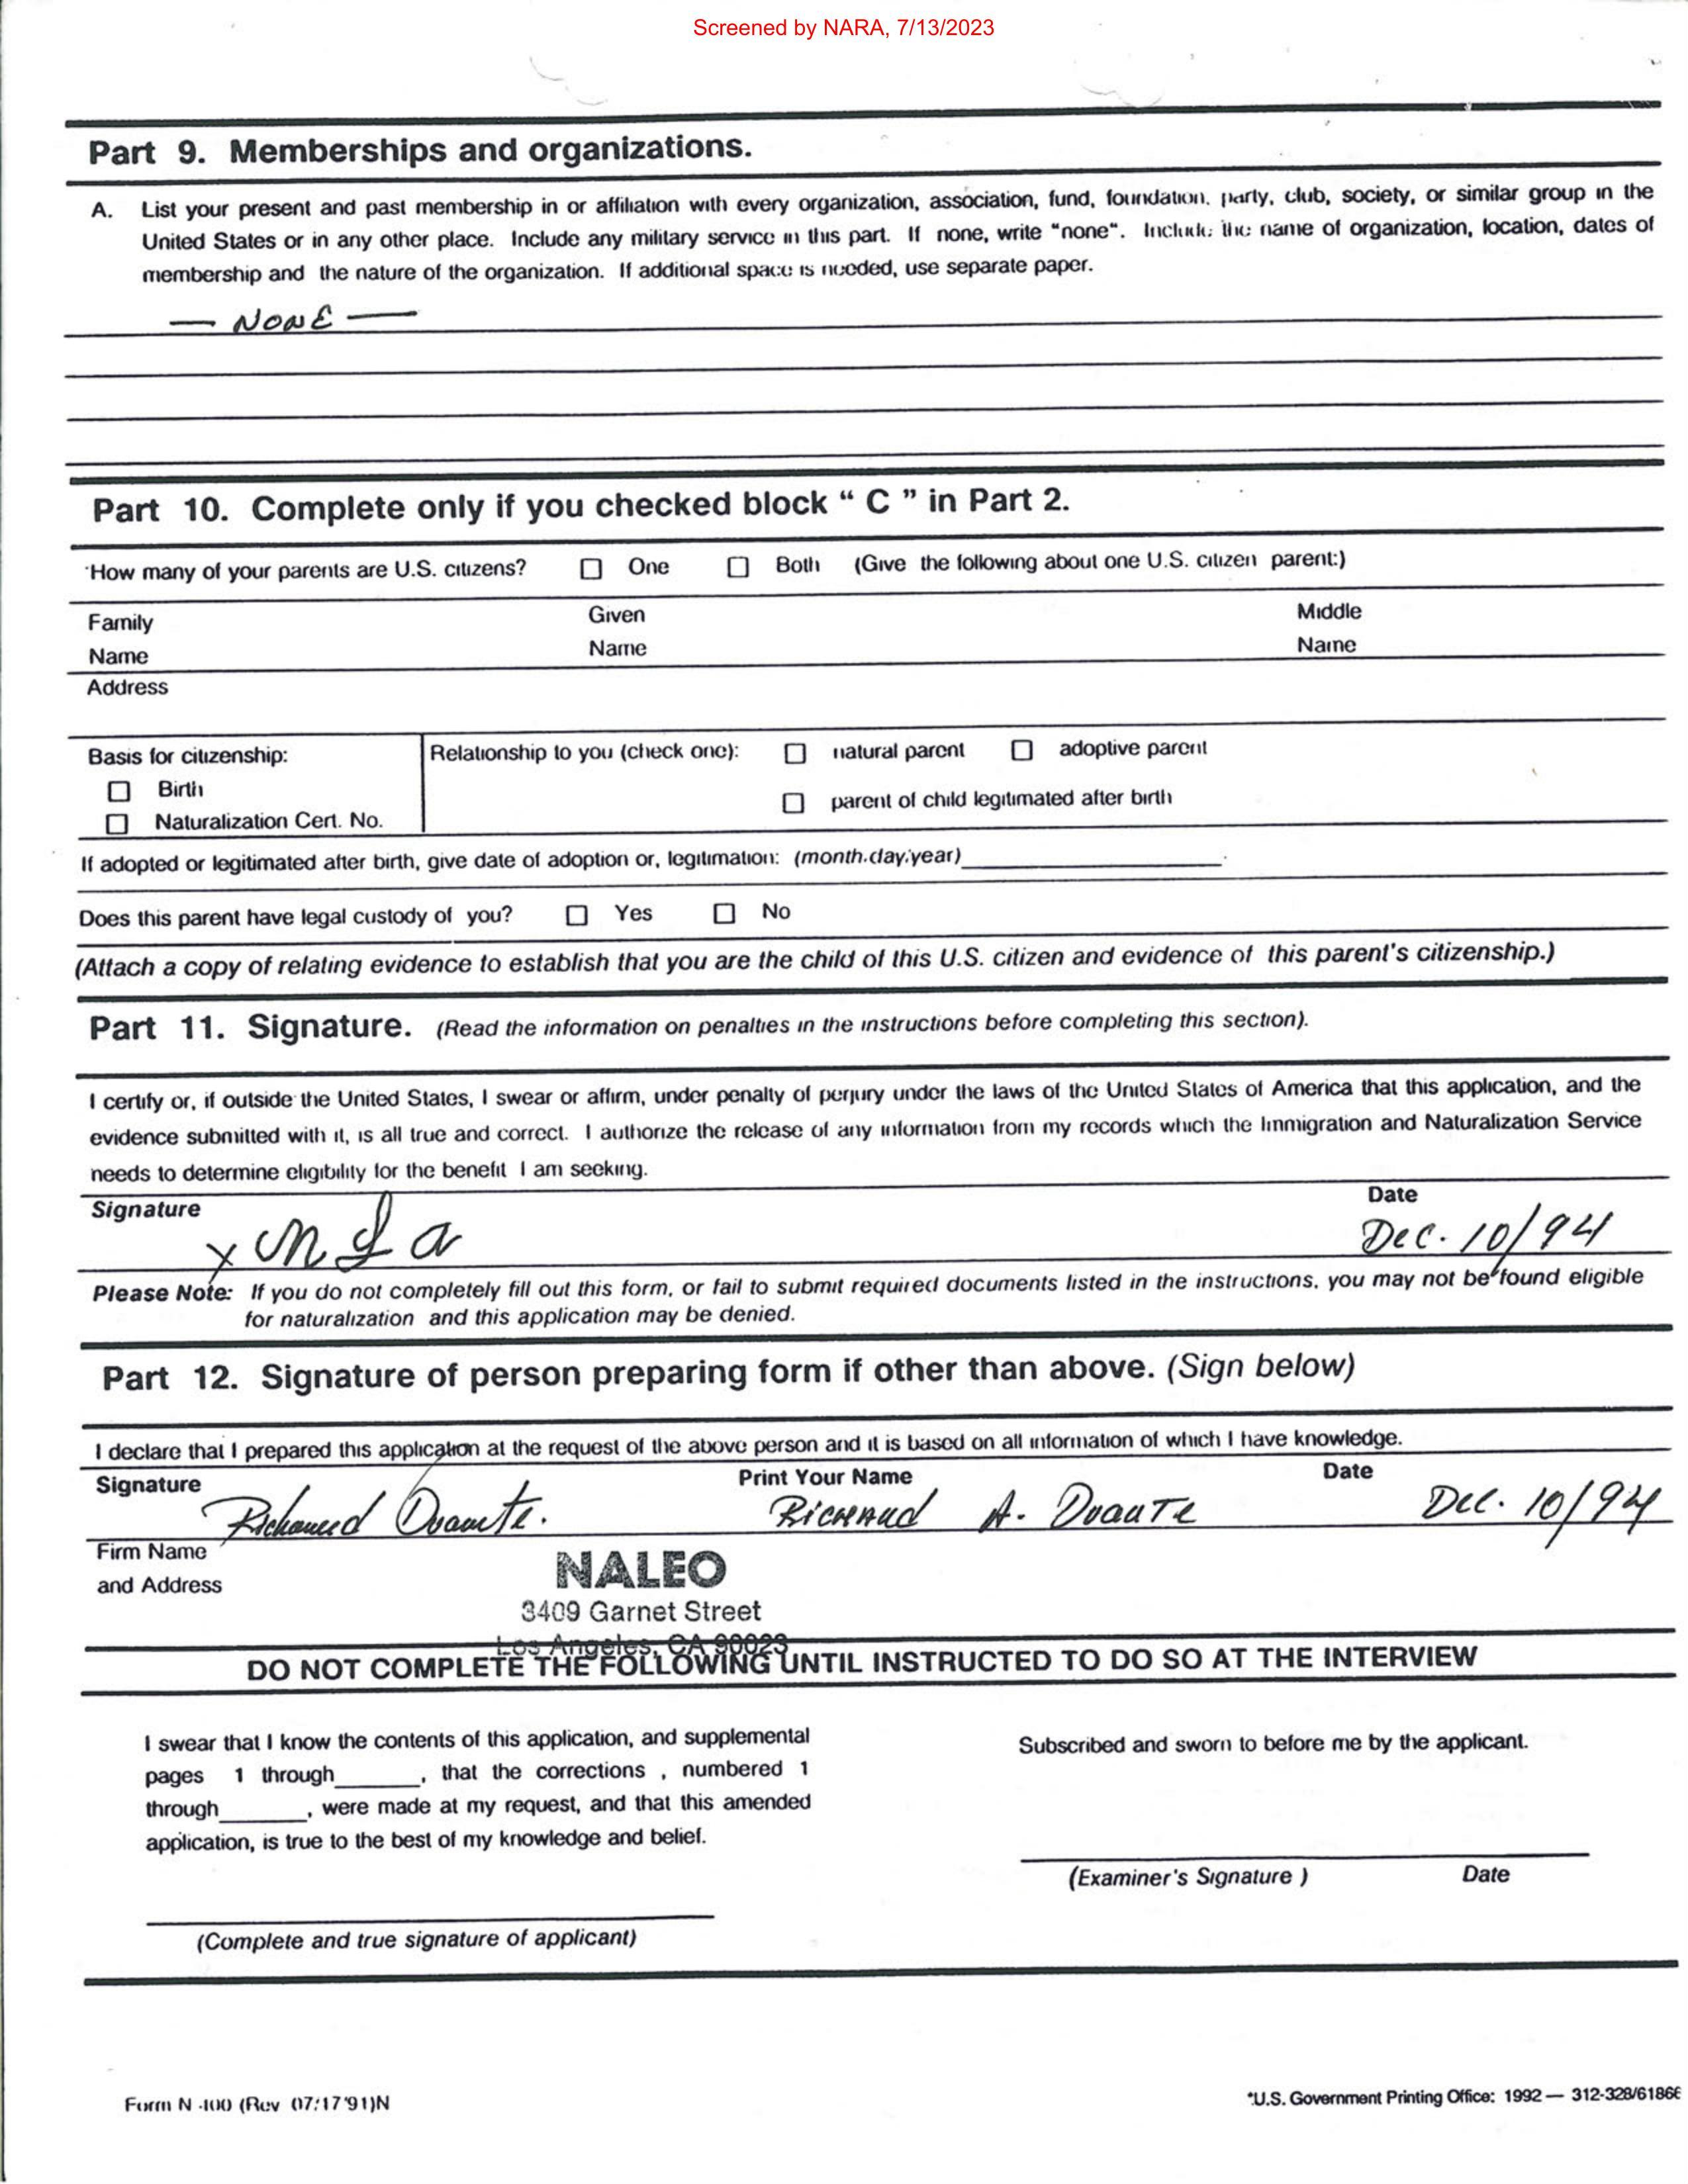 Screened by NARA, 7/13/2023
Part 9. Memberships and organizations.
A. List your present and past membership in or affiliation with every organization, association, fund, foundation, party, club, society, or similar group in the
United States or in any other place. Include any military service in this part. If none, write "none". Include the name of organization, location, dates of
membership and the nature of the organization. If additional space is needed, use separate paper.
— NONE —
Part 10. Complete only if you checked block " C " in Part 2.
How many of your parents are U.S. citizens? ☐ One ☐ Both (Give the following about one U.S. citizen parent:)
Family Given Middle
Name Name Name
Address
Basis for citizenship: Relationship to you (check one): ☐ natural parent ☐ adoptive parent
☐ Birth ☐ parent of child legitimated after birth
☐ Naturalization Cert. No.
If adopted or legitimated after birth, give date of adoption or, legitimation: (month/day/year)
Does this parent have legal custody of you? ☐ Yes ☐ No
(Attach a copy of relating evidence to establish that you are the child of this U.S. citizen and evidence of this parent's citizenship.)
Part 11. Signature. (Read the information on penalties in the instructions before completing this section).
I certify or, if outside the United States, I swear or affirm, under penalty of perjury under the laws of the United States of America that this application, and the
evidence submitted with it, is all true and correct. I authorize the release of any information from my records which the Immigration and Naturalization Service
needs to determine eligibility for the benefit I am seeking.
Signature Date
x Dec. 10/94
Please Note: If you do not completely fill out this form, or fail to submit required documents listed in the instructions, you may not be found eligible
for naturalization and this application may be denied.
Part 12. Signature of person preparing form if other than above. (Sign below)
I declare that I prepared this application at the request of the above person and it is based on all information of which I have knowledge.
Signature Print Your Name Date
Richard Duarte. Richard A. Duarte Dec. 10/94
Firm Name NALEO
and Address 3409 Garnet Street
Los Angeles, CA 90023
DO NOT COMPLETE THE FOLLOWING UNTIL INSTRUCTED TO DO SO AT THE INTERVIEW
I swear that I know the contents of this application, and supplemental
pages 1 through______, that the corrections , numbered 1
through______, were made at my request, and that this amended
application, is true to the best of my knowledge and belief.
(Complete and true signature of applicant)
Subscribed and sworn to before me by the applicant.
(Examiner's Signature ) Date
Form N-400 (Rev 07/17/91)N *U.S. Government Printing Office: 1992 — 312-328/61866